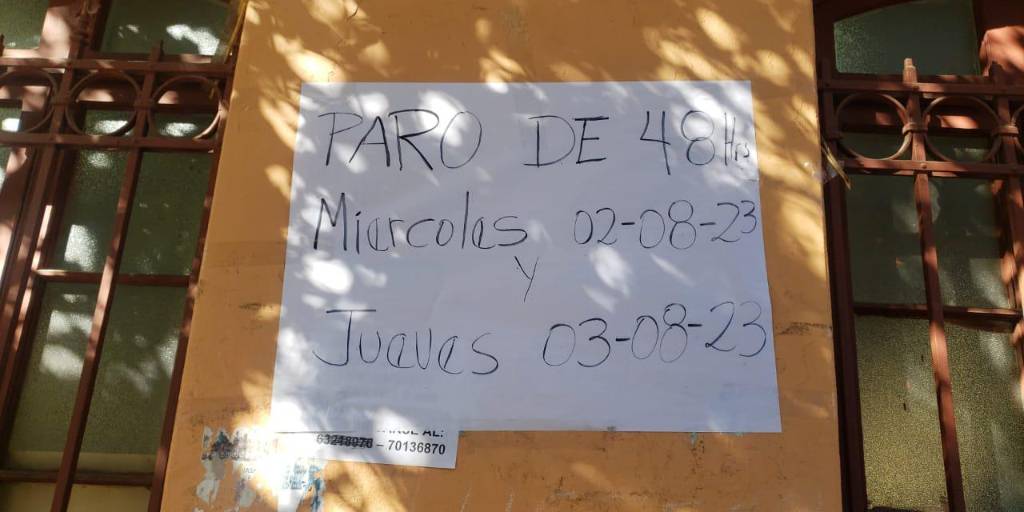 PARO DE 48Hrs
Miercoles 02-08-23
y
Jueves 03-08-23
AL:
63218976 – 70136870